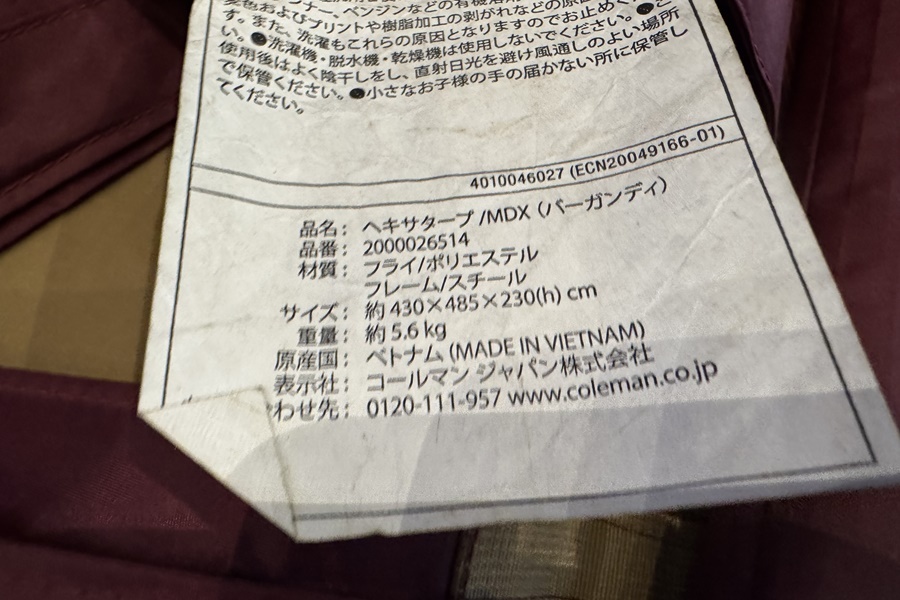 ンナー、ベンジンなどの有機溶剤
変色およびプリントや樹脂加工の剥がれなどの原因
す。また、洗濯もこれらの原因となりますのでお止めく
い。●洗濯機・脱水機・乾燥機は使用しないでください。●ご
使用後はよく陰干しをし、直射日光を避け風通しのよい場所
で保管ください。●小さなお子様の手の届かない所に保管し
てください。
4010046027 (ECN20049166-01)
品名： ヘキサタープ /MDX（バーガンディ）
品番： 2000026514
材質： フライ/ポリエステル
フレーム/スチール
サイズ： 約 430×485×230(h) cm
重量： 約 5.6 kg
原産国： ベトナム (MADE IN VIETNAM)
表示社： コールマン ジャパン株式会社
わせ先： 0120-111-957 www.coleman.co.jp